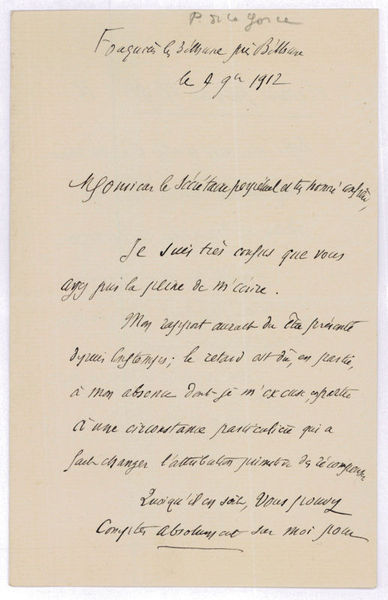 P. de la Gorce
Fouquières les Béthune près Béthune
le 4 9bre 1912
Monsieur le Secrétaire perpétuel et très honoré confrère,
Je suis très confus que vous
ayez pris la peine de m'écrire.
Mon rapport aurait dû être présenté
depuis longtemps ; le retard est dû, en partie,
à mon absence dont je m'excuse, en partie
à une circonstance particulière qui a
fait changer l'attribution primitive des récompenses
Quoiqu'il en soit, vous pouvez
compter absolument sur moi pour